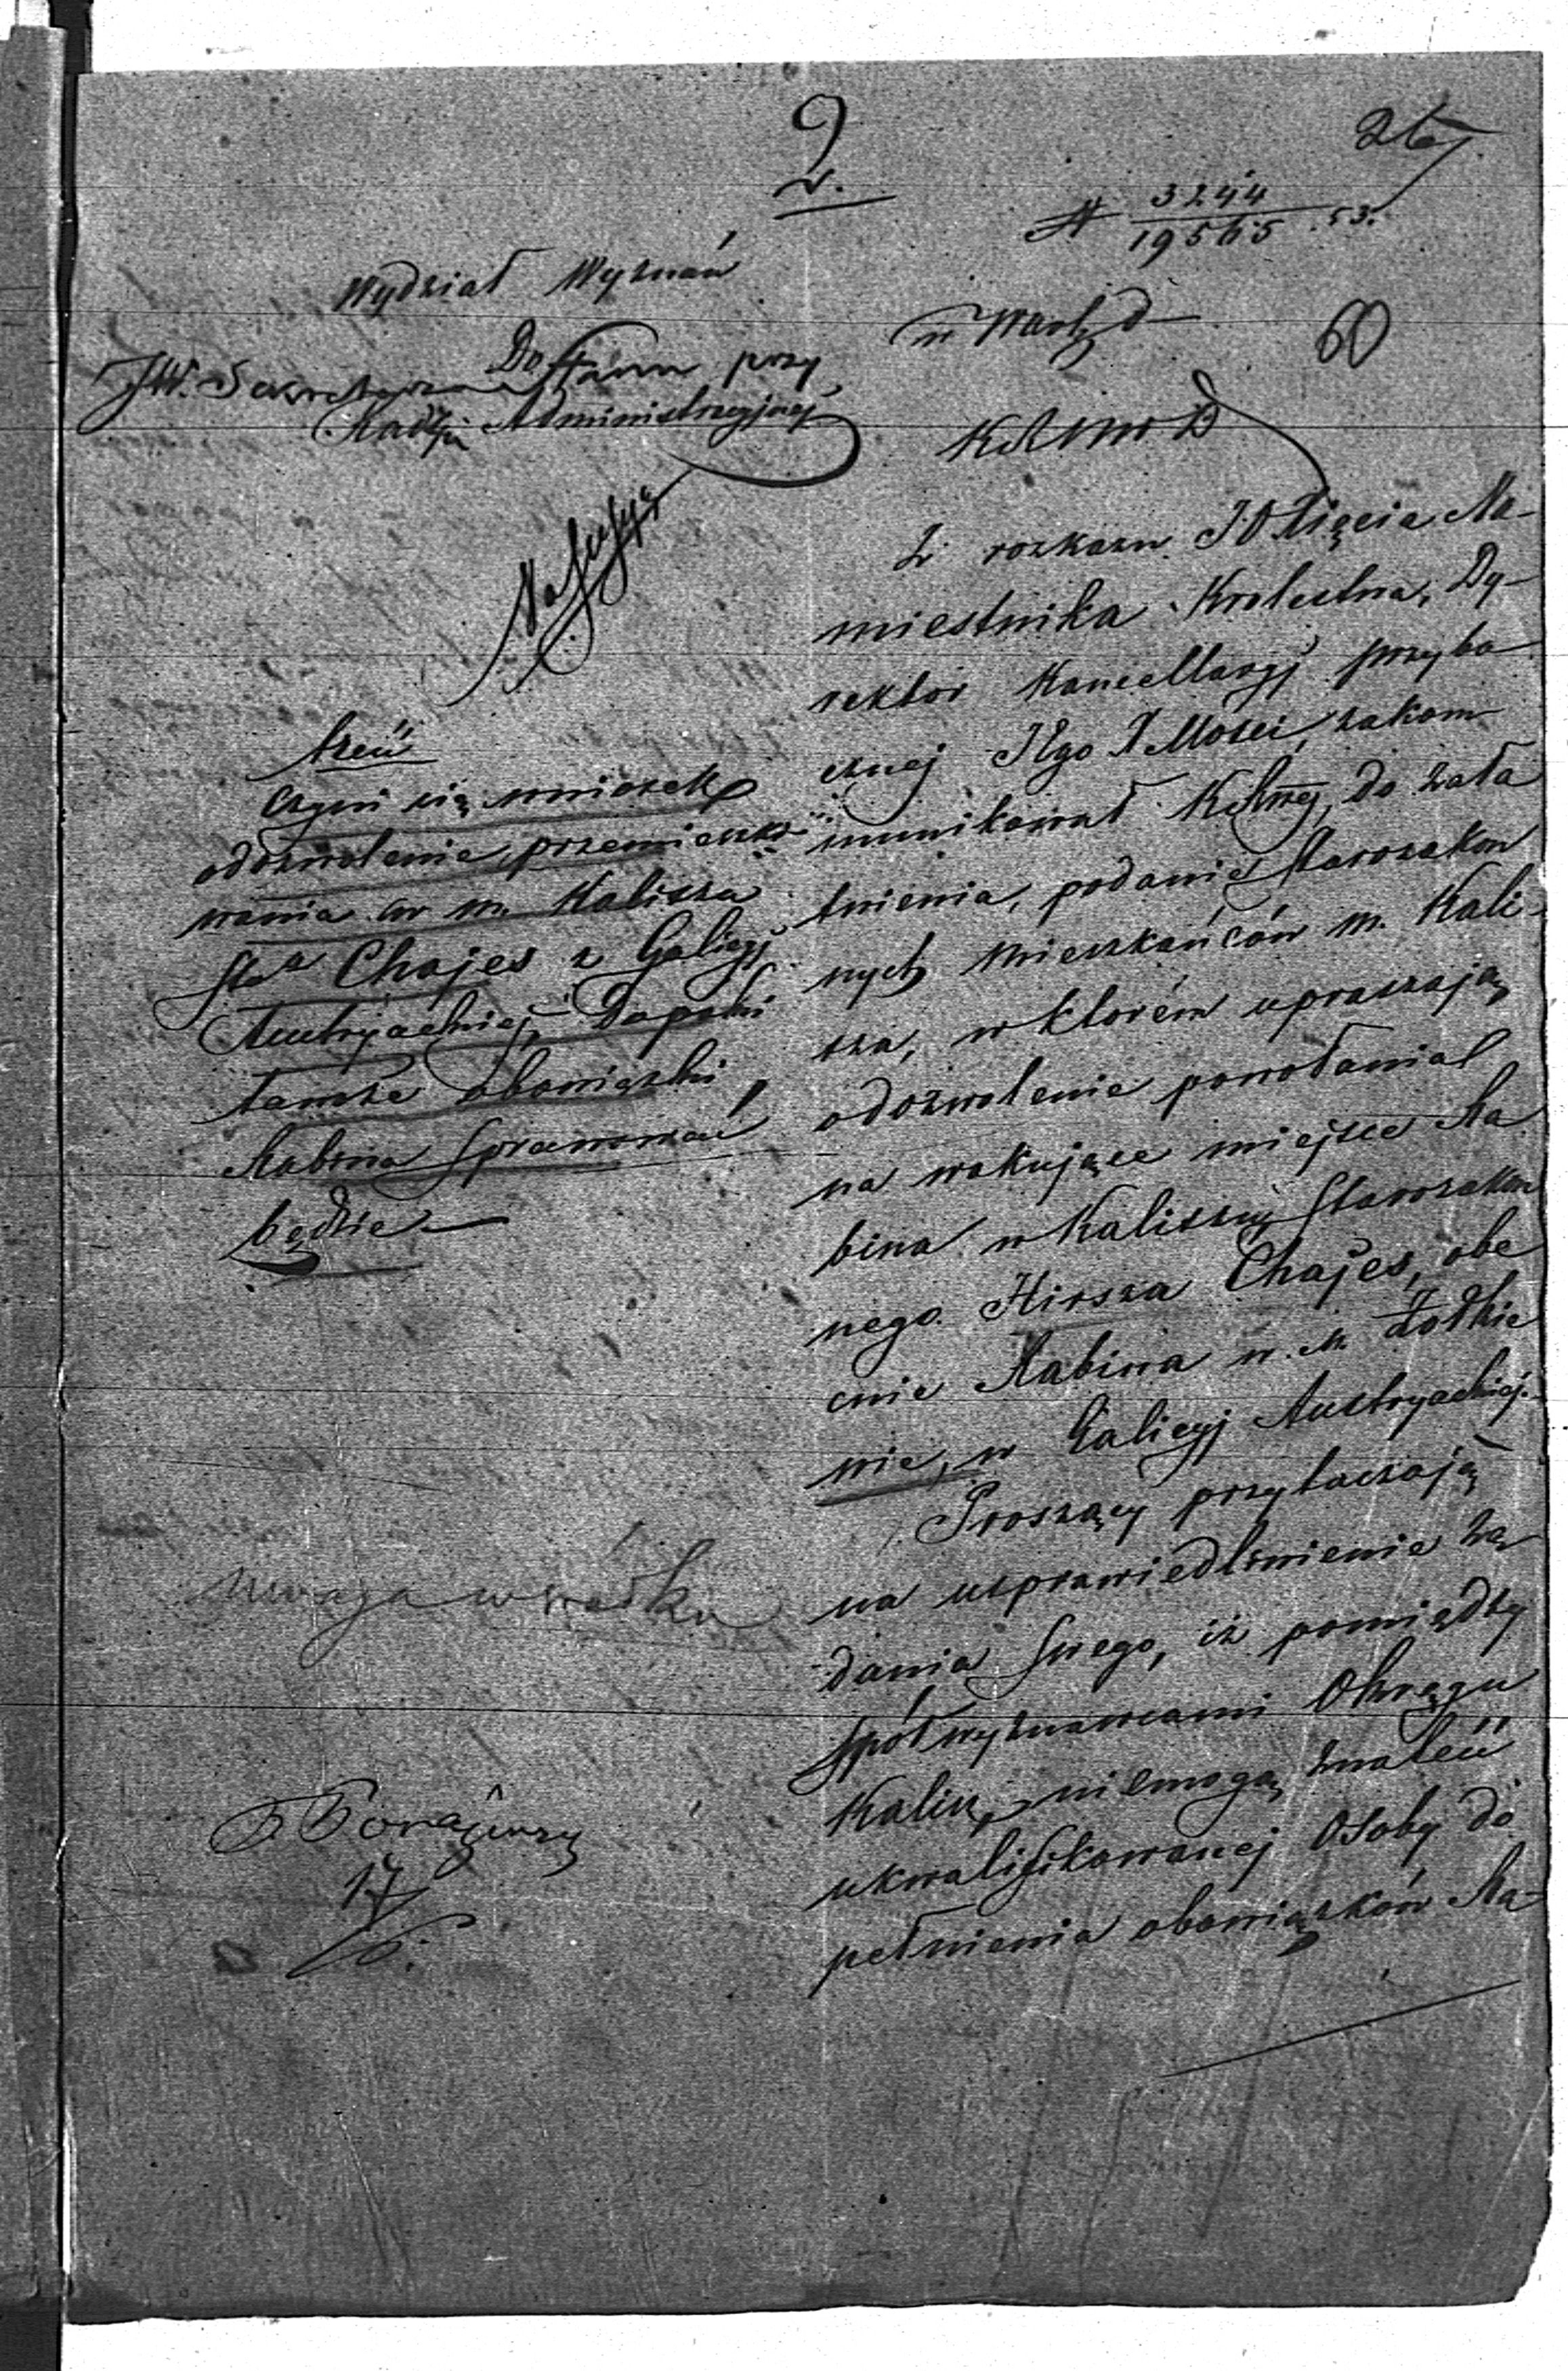 2
26
N 3244
19565 . 53.
Wydział Wyznań
w Warsz d
60
Do
JW. Sekretarza Stanu przy
Radzie Administracyjnej
KRSWiD
Treść
Czyni się wniosek
o dozwolenie przemieszki
wania w m. Kaliszu
Sta Chajes z Galicyj
Austryackiej, Dopóki
tamże obowiązki
Rabina sprawować
będzie
Z rozkazu J.O. Xięcia Na-
miestnika Królestwa, Dy-
rektor Kancellaryj przybo
cznej Jego X Mości, zakom
munikował KRSWej, do zała
twienia, podanie Starozakon
nych mieszkańców m. Kali-
sza, w którém upraszają
o dozwolenie powołania
na wakujące miejsce Ra
bina w Kaliszu, Starozakon
nego Hirsza Chajes, obe
cnie Rabina w m. Żołkie
wie, w Galicyj Austryackiej.
Proszący przytaczają
na usprawiedliwienie żą
dania swego, iż pomiędzy
spółwyznawcami Okręgu
Kalisk. niemogą znaleść
ukwalifikowanej Osoby do
pełnienia obowiązków Ra-
uwaga w środku
17